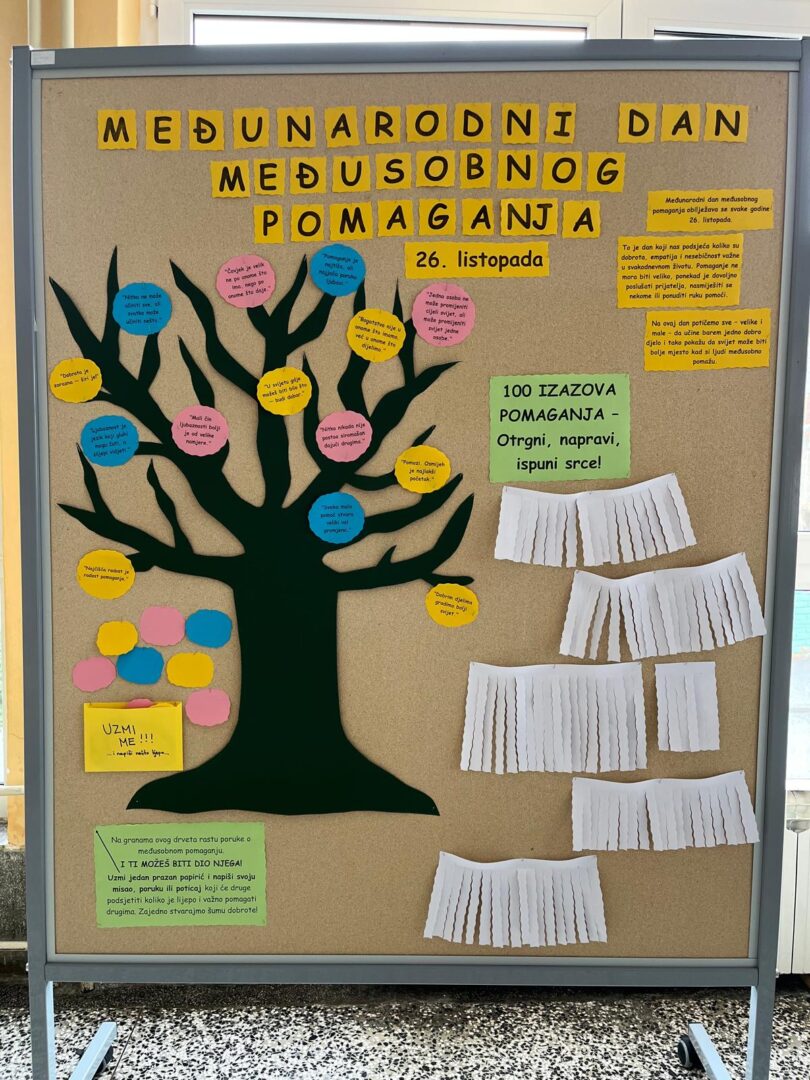 MEĐUNARODNI DAN
MEĐUSOBNOG
POMAGANJA
26. listopada
Međunarodni dan međusobnog
pomaganja obilježava se svake godine
26. listopada.
To je dan koji nas podsjeća koliko su
dobrota, empatija i nesebičnost važne
u svakodnevnom životu. Pomaganje ne
mora biti veliko, ponekad je dovoljno
poslušati prijatelja, nasmiješiti se
nekome ili ponuditi ruku pomoći.
Na ovaj dan potičemo sve – velike i
male – da učine barem jedno dobro
djelo i tako pokažu da svijet može biti
bolje mjesto kad si ljudi međusobno
pomažu.
"Pomaganje je
najtiša, ali
najjača poruka
ljubavi."
"Čovjek je velik
ne po onome što
ima, nego po
onome što daje."
"Nitko ne može
učiniti sve, ali
svatko može
učiniti nešto."
"Jedna osoba ne
može promijeniti
cijeli svijet, ali
može promijeniti
svijet jedne
osobe."
"Bogatstvo nije u
onome što imamo,
već u onome što
dijelimo."
"Dobrota je
zarazna – širi je!"
"U svijetu gdje
možeš biti bilo što
– budi dobar."
"Ljubaznost je
jezik koji gluhi
mogu čuti, a
slijepi vidjeti."
"Mali čin
ljubaznosti bolji
je od velike
namjere."
"Nitko nikada nije
postao siromašan
dajući drugima."
"Pomozi. Osmijeh
je najlakši
početak."
"Svaka mala
pomoć stvara
veliki val
promjena."
"Najčišća radost je
radost pomaganja."
"Dobrim djelima
gradimo bolji
svijet."
100 IZAZOVA
POMAGANJA –
Otrgni, napravi,
ispuni srce!
UZMI
ME!!!
...i napiši nešto lijepo...
Na granama ovog drveta rastu poruke o
međusobnom pomaganju.
I TI MOŽEŠ BITI DIO NJEGA!
Uzmi jedan prazan papirić i napiši svoju
misao, poruku ili poticaj koji će druge
podsjetiti koliko je lijepo i važno pomagati
drugima. Zajedno stvarajmo šumu dobrote!